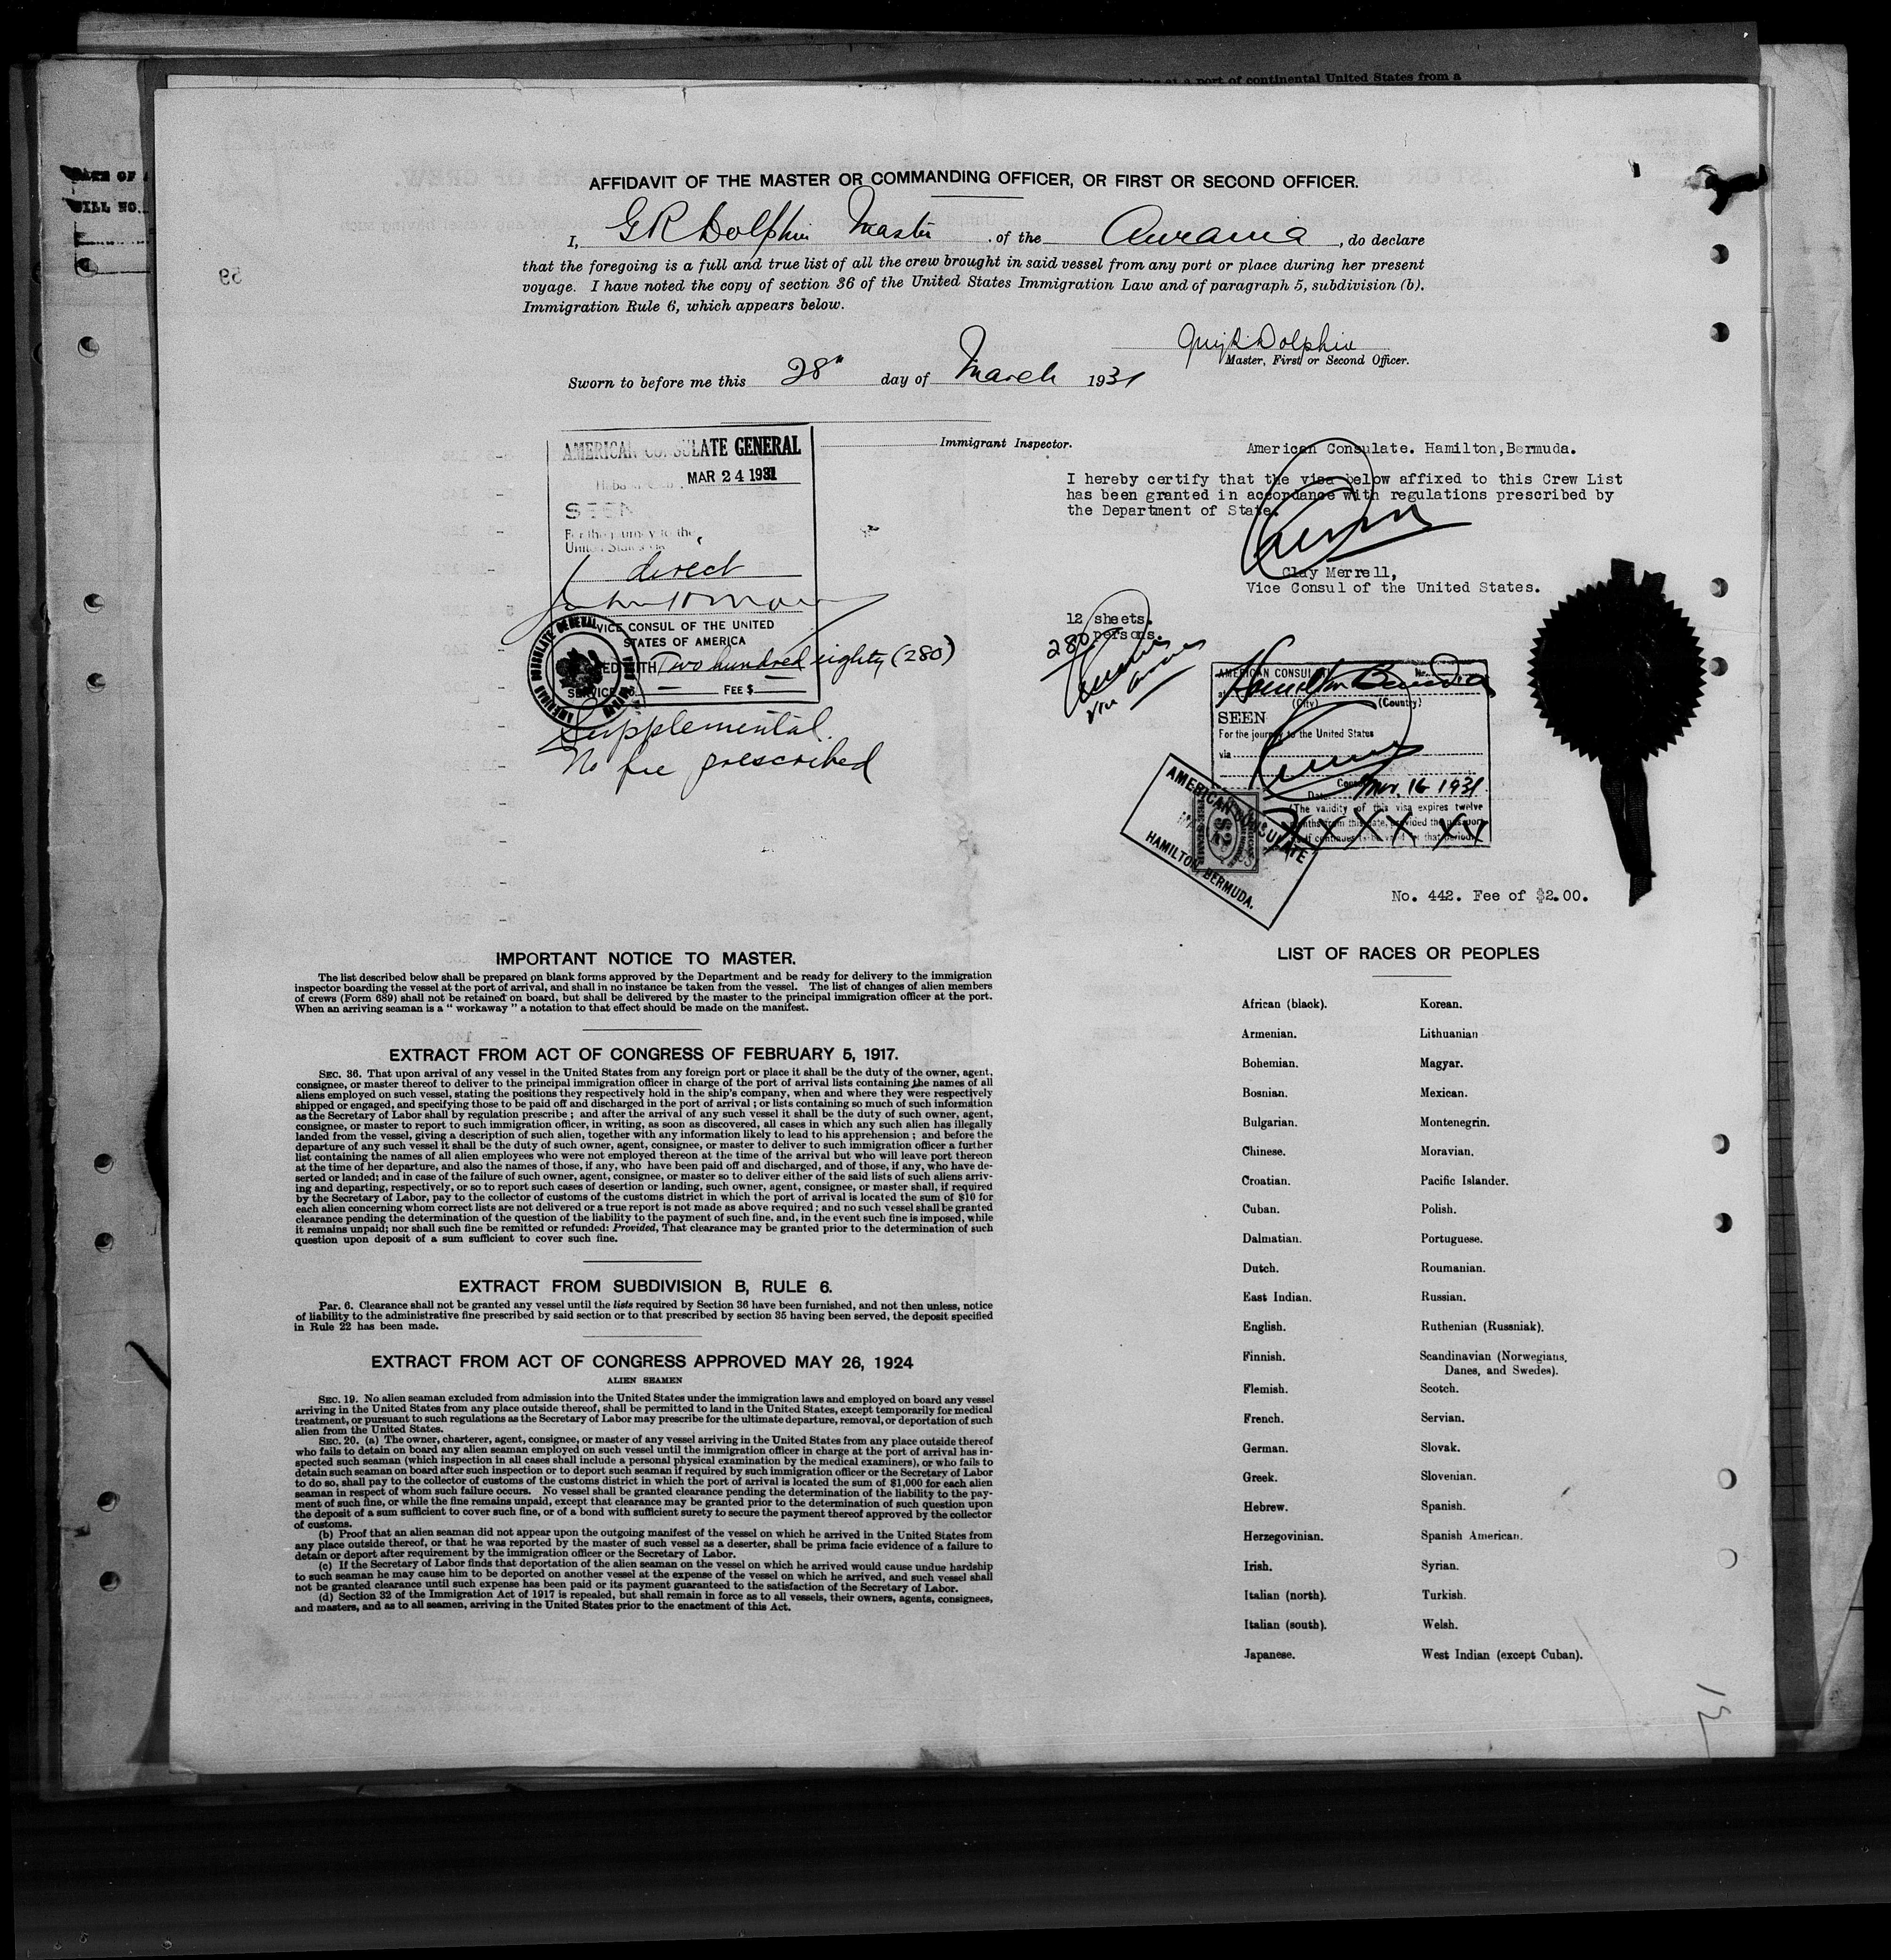 AFFIDAVIT OF THE MASTER OR COMMANDING OFFICER, OR FIRST OR SECOND OFFICER.
I, G R Dolphin Master of the Aurania, do declare
that the foregoing is a full and true list of all the crew brought in said vessel from any port or place during her present
voyage. I have noted the copy of section 36 of the United States Immigration Law and of paragraph 5, subdivision (b).
Immigration Rule 6, which appears below.
Guy R Dolphin
Master, First or Second Officer.
Sworn to before me this 28" day of March 1931
Immigrant Inspector.
AMERICAN CONSULATE GENERAL
MAR 24 1931
SEEN
For the journey to the
United States via
direct
VICE CONSUL OF THE UNITED
STATES OF AMERICA
Two hundred eighty (280)
SERVICE FEE $
Supplemental.
No fee prescribed
AMERICAN CONSULATE GENERAL
American Consulate. Hamilton, Bermuda.
I hereby certify that the visa below affixed to this Crew List
has been granted in accordance with regulations prescribed by
the Department of State.
Clay Merrell,
Vice Consul of the United States.
12 sheets.
280 persons.
AMERICAN CONSULATE
at Hamilton Bermuda
(City) (Country)
SEEN
For the journey to the United States
via
Date Mar. 16 1931
(The validity of this visa expires twelve
months from this date, provided the passport
itself continues to be valid for that period)
XXXX XX
AMERICAN CONSULATE
HAMILTON, BERMUDA.
$2
No. 442. Fee of $2.00.
IMPORTANT NOTICE TO MASTER.
The list described below shall be prepared on blank forms approved by the Department and be ready for delivery to the immigration
inspector boarding the vessel at the port of arrival, and shall in no instance be taken from the vessel. The list of changes of alien members
of crews (Form 689) shall not be retained on board, but shall be delivered by the master to the principal immigration officer at the port.
When an arriving seaman is a " workaway " a notation to that effect should be made on the manifest.
EXTRACT FROM ACT OF CONGRESS OF FEBRUARY 5, 1917.
SEC. 36. That upon arrival of any vessel in the United States from any foreign port or place it shall be the duty of the owner, agent,
consignee, or master thereof to deliver to the principal immigration officer in charge of the port of arrival lists containing the names of all
aliens employed on such vessel, stating the positions they respectively hold in the ship's company, when and where they were respectively
shipped or engaged, and specifying those to be paid off and discharged in the port of arrival ; or lists containing so much of such information
as the Secretary of Labor shall by regulation prescribe ; and after the arrival of any such vessel it shall be the duty of such owner, agent,
consignee, or master to report to such immigration officer, in writing, as soon as discovered, all cases in which any such alien has illegally
landed from the vessel, giving a description of such alien, together with any information likely to lead to his apprehension ; and before the
departure of any such vessel it shall be the duty of such owner, agent, consignee, or master to deliver to such immigration officer a further
list containing the names of all alien employees who were not employed thereon at the time of the arrival but who will leave port thereon
at the time of her departure, and also the names of those, if any, who have been paid off and discharged, and of those, if any, who have de-
serted or landed; and in case of the failure of such owner, agent, consignee, or master so to deliver either of the said lists of such aliens arriv-
ing and departing, respectively, or so to report such cases of desertion or landing, such owner, agent, consignee, or master shall, if required
by the Secretary of Labor, pay to the collector of customs of the customs district in which the port of arrival is located the sum of $10 for
each alien concerning whom correct lists are not delivered or a true report is not made as above required ; and no such vessel shall be granted
clearance pending the determination of the question of the liability to the payment of such fine, and, in the event such fine is imposed, while
it remains unpaid; nor shall such fine be remitted or refunded: Provided, That clearance may be granted prior to the determination of such
question upon deposit of a sum sufficient to cover such fine.
EXTRACT FROM SUBDIVISION B, RULE 6.
Par. 6. Clearance shall not be granted any vessel until the lists required by Section 36 have been furnished, and not then unless, notice
of liability to the administrative fine prescribed by said section or to that prescribed by section 35 having been served, the deposit specified
in Rule 22 has been made.
EXTRACT FROM ACT OF CONGRESS APPROVED MAY 26, 1924
ALIEN SEAMEN
SEC. 19. No alien seaman excluded from admission into the United States under the immigration laws and employed on board any vessel
arriving in the United States from any place outside thereof, shall be permitted to land in the United States, except temporarily for medical
treatment, or pursuant to such regulations as the Secretary of Labor may prescribe for the ultimate departure, removal, or deportation of such
alien from the United States.
SEC. 20. (a) The owner, charterer, agent, consignee, or master of any vessel arriving in the United States from any place outside thereof
who fails to detain on board any alien seaman employed on such vessel until the immigration officer in charge at the port of arrival has in-
spected such seaman (which inspection in all cases shall include a personal physical examination by the medical examiners), or who fails to
detain such seaman on board after such inspection or to deport such seaman if required by such immigration officer or the Secretary of Labor
to do so, shall pay to the collector of customs of the customs district in which the port of arrival is located the sum of $1,000 for each alien
seaman in respect of whom such failure occurs. No vessel shall be granted clearance pending the determination of the liability to the pay-
ment of such fine, or while the fine remains unpaid, except that clearance may be granted prior to the determination of such question upon
the deposit of a sum sufficient to cover such fine, or of a bond with sufficient surety to secure the payment thereof approved by the collector
of customs.
(b) Proof that an alien seaman did not appear upon the outgoing manifest of the vessel on which he arrived in the United States from
any place outside thereof, or that he was reported by the master of such vessel as a deserter, shall be prima facie evidence of a failure to
detain or deport after requirement by the immigration officer or the Secretary of Labor.
(c) If the Secretary of Labor finds that deportation of the alien seaman on the vessel on which he arrived would cause undue hardship
to such seaman he may cause him to be deported on another vessel at the expense of the vessel on which he arrived, and such vessel shall
not be granted clearance until such expense has been paid or its payment guaranteed to the satisfaction of the Secretary of Labor.
(d) Section 32 of the Immigration Act of 1917 is repealed, but shall remain in force as to all vessels, their owners, agents, consignees,
and masters, and as to all seamen, arriving in the United States prior to the enactment of this Act.
LIST OF RACES OR PEOPLES
African (black). Korean.
Armenian. Lithuanian
Bohemian. Magyar.
Bosnian. Mexican.
Bulgarian. Montenegrin.
Chinese. Moravian.
Croatian. Pacific Islander.
Cuban. Polish.
Dalmatian. Portuguese.
Dutch. Roumanian.
East Indian. Russian.
English. Ruthenian (Russniak).
Finnish. Scandinavian (Norwegians,
Danes, and Swedes).
Flemish. Scotch.
French. Servian.
German. Slovak.
Greek. Slovenian.
Hebrew. Spanish.
Herzegovinian. Spanish American.
Irish. Syrian.
Italian (north). Turkish.
Italian (south). Welsh.
Japanese. West Indian (except Cuban).